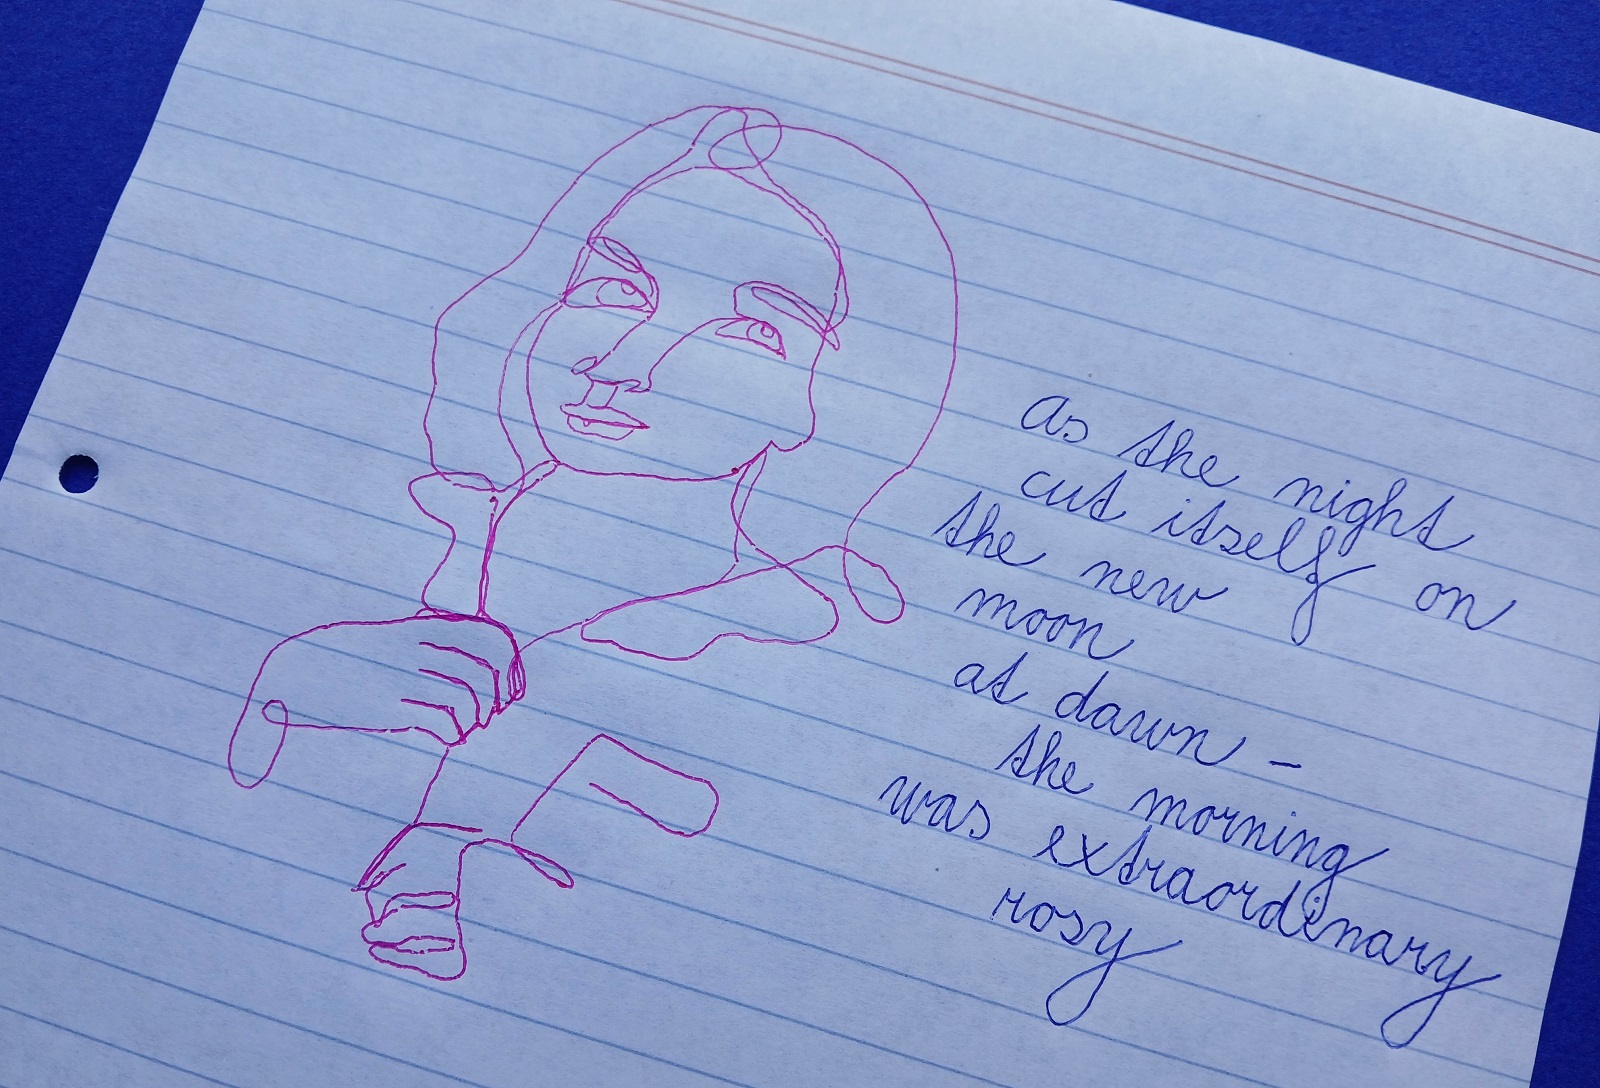 as the night
cut itself on
the new
moon
at dawn –
the morning
was extraordinary
rosy